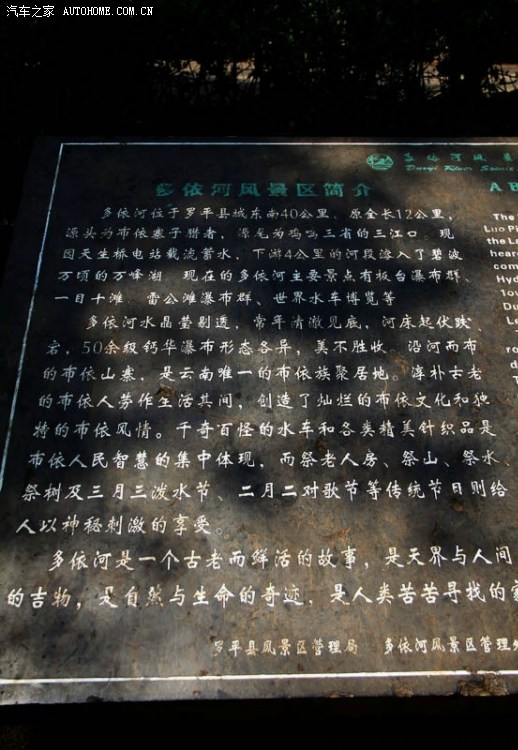 汽车之家 AUTOHOME.COM.CN
多依河风景
多依河风景区简介
A B
多依河位于罗平县城东南40公里、原全长12公里，
源头为布依寨子腊者，源尾为鸡鸣三省的三江口 现
因天生桥电站截流蓄水，下游4公里的河段溶入了碧波
万顷的万峰湖 现在的多依河主要景点有板台瀑布群、
一目十滩 雷公滩瀑布群、世界水车博览等
多依河水晶莹剔透，常年清澈见底，河床起伏跌
宕，50余级钙华瀑布形态各异，美不胜收 沿河而布
的布依山寨，是云南唯一的布依族聚居地。淳朴古老
的布依人劳作生活其间，创造了灿烂的布依文化和独
特的布依风情。千奇百怪的水车和各类精美针织品是
布依人民智慧的集中体现，而祭老人房、祭山、祭水、
祭树及三月三泼水节、二月二对歌节等传统节日则给
人以神秘刺激的享受。
多依河是一个古老而鲜活的故事，是天界与人间
的吉物，是自然与生命的奇迹，是人类苦苦寻找的家
罗平县风景区管理局 多依河风景区管理
The
Luo Pi
the La
hear
com
Hyd
Tou
Du
Le
ro
d
T